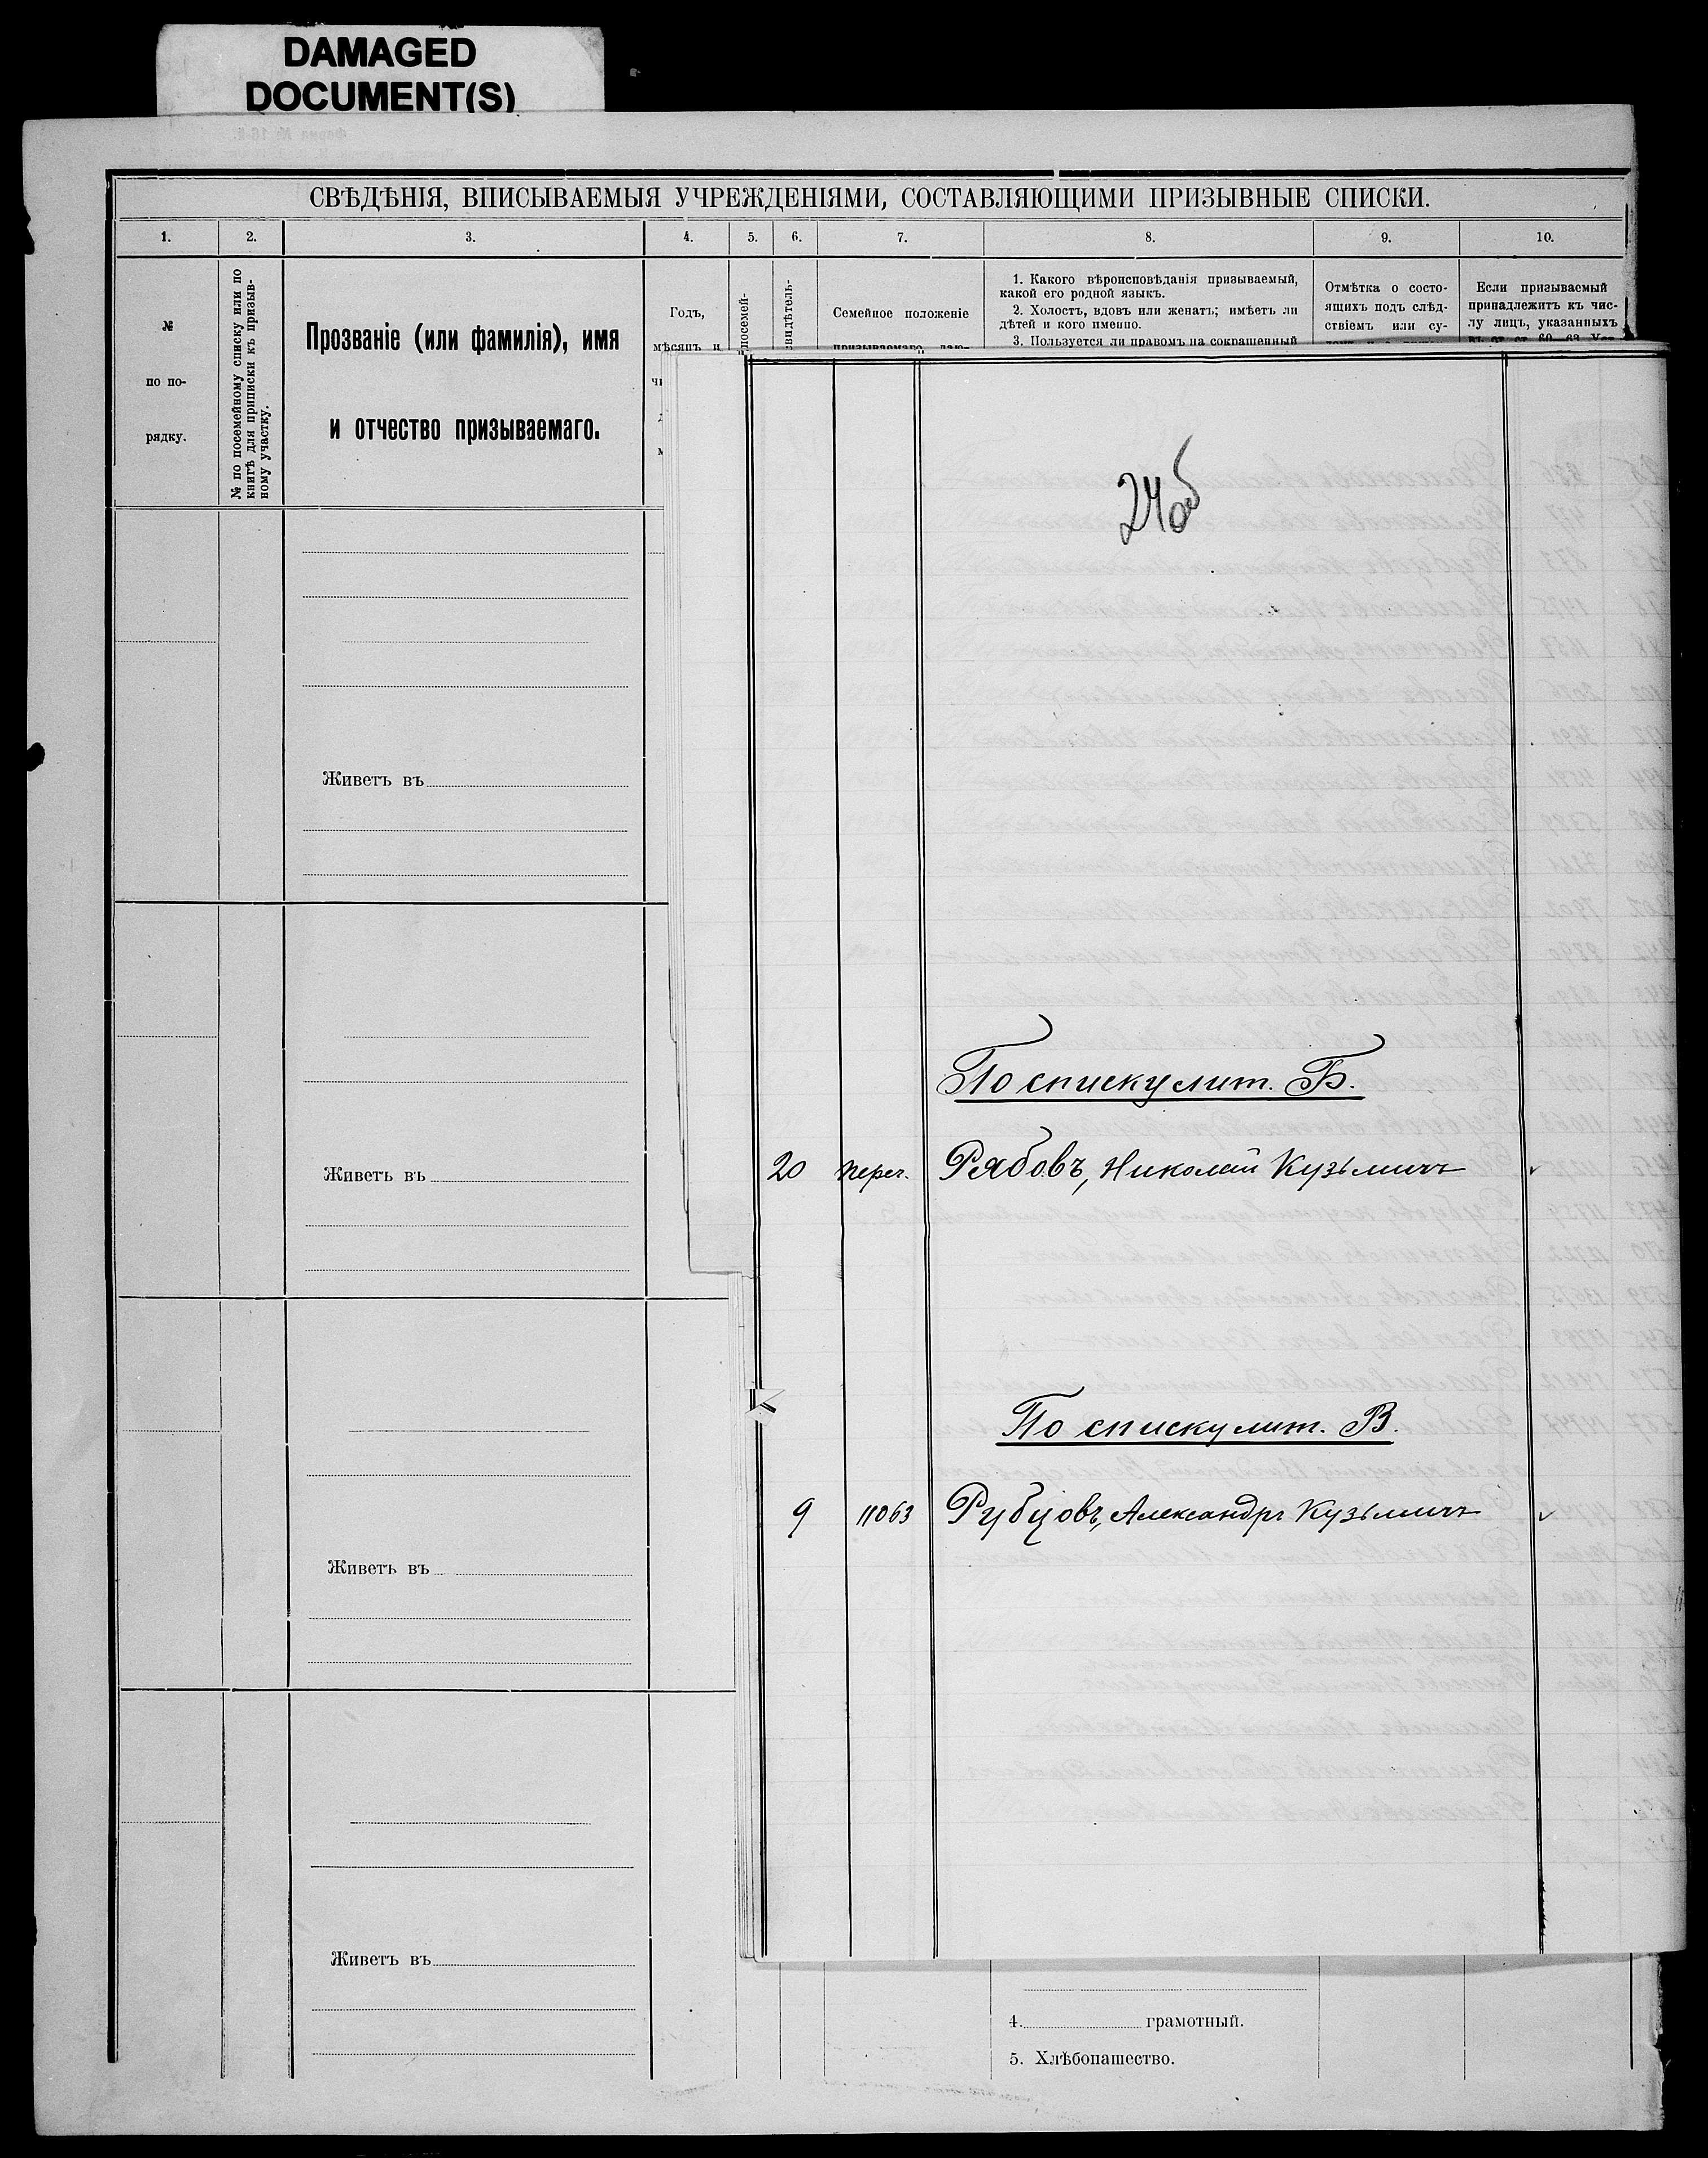 DAMAGED
DOCUMENT(S)
СВѢДѢНІЯ, ВПИСЫВАЕМЫЯ УЧРЕЖДЕНІЯМИ, СОСТАВЛЯЮЩИМИ ПРИЗЫВНЫЕ СПИСКИ.
1. 2. 3. 4. 5. 6. 7. 8. 9. 10.
№
по по-
рядку.
№ по посемейному списку или по
книгѣ для приписки къ призыв-
ному участку.
Прозваніе (или фамилія), имя
и отчество призываемаго.
Годъ,
мѣсяцъ и
посемей-
свидѣтель-
Семейное положеніе
призываемаго,
1. Какого вѣроисповѣданія призываемый,
какой его родной языкъ.
2. Холостъ, вдовъ или женатъ; имѣетъ ли
дѣтей и кого именно.
3. Пользуется ли правомъ на сокращенный
Отмѣтка о состо-
ящихъ подъ слѣд-
ствіемъ или су-
Если призываемый
принадлежитъ къ чис-
лу лицъ, указанныхъ
въ ст. ст. 60—63 Уст.
24об
Живетъ въ
По списку лит. Б.
20 переч. Рябовъ, Николай Кузьмичъ
Живетъ въ
По списку лит. В.
9 11063 Рубцовъ, Александръ Кузьмичъ
Живетъ въ
Живетъ въ
4. грамотный.
5. Хлѣбопашество.